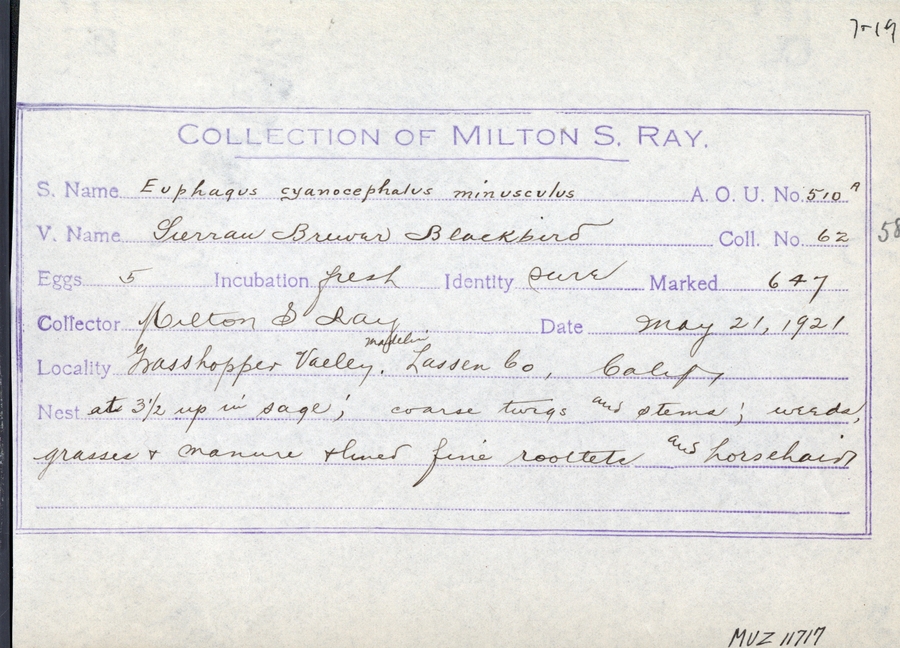 7-19
COLLECTION OF MILTON S. RAY.
S. Name Euphagus cyanocephalus minusculus A. O. U. No. 510 a
V. Name Sierran Brewer Blackbird Coll. No. 62
58
Eggs 5 Incubation fresh Identity sure Marked 647
Collector Milton S Ray Date May 21, 1921
Locality Grasshopper Valley, Madelin Lassen Co, Calif,
Nest at 3½ up in sage; coarse twigs and stems; weeds,
grasses & manure & lined fine rootlets and horsehair
MVZ 11717